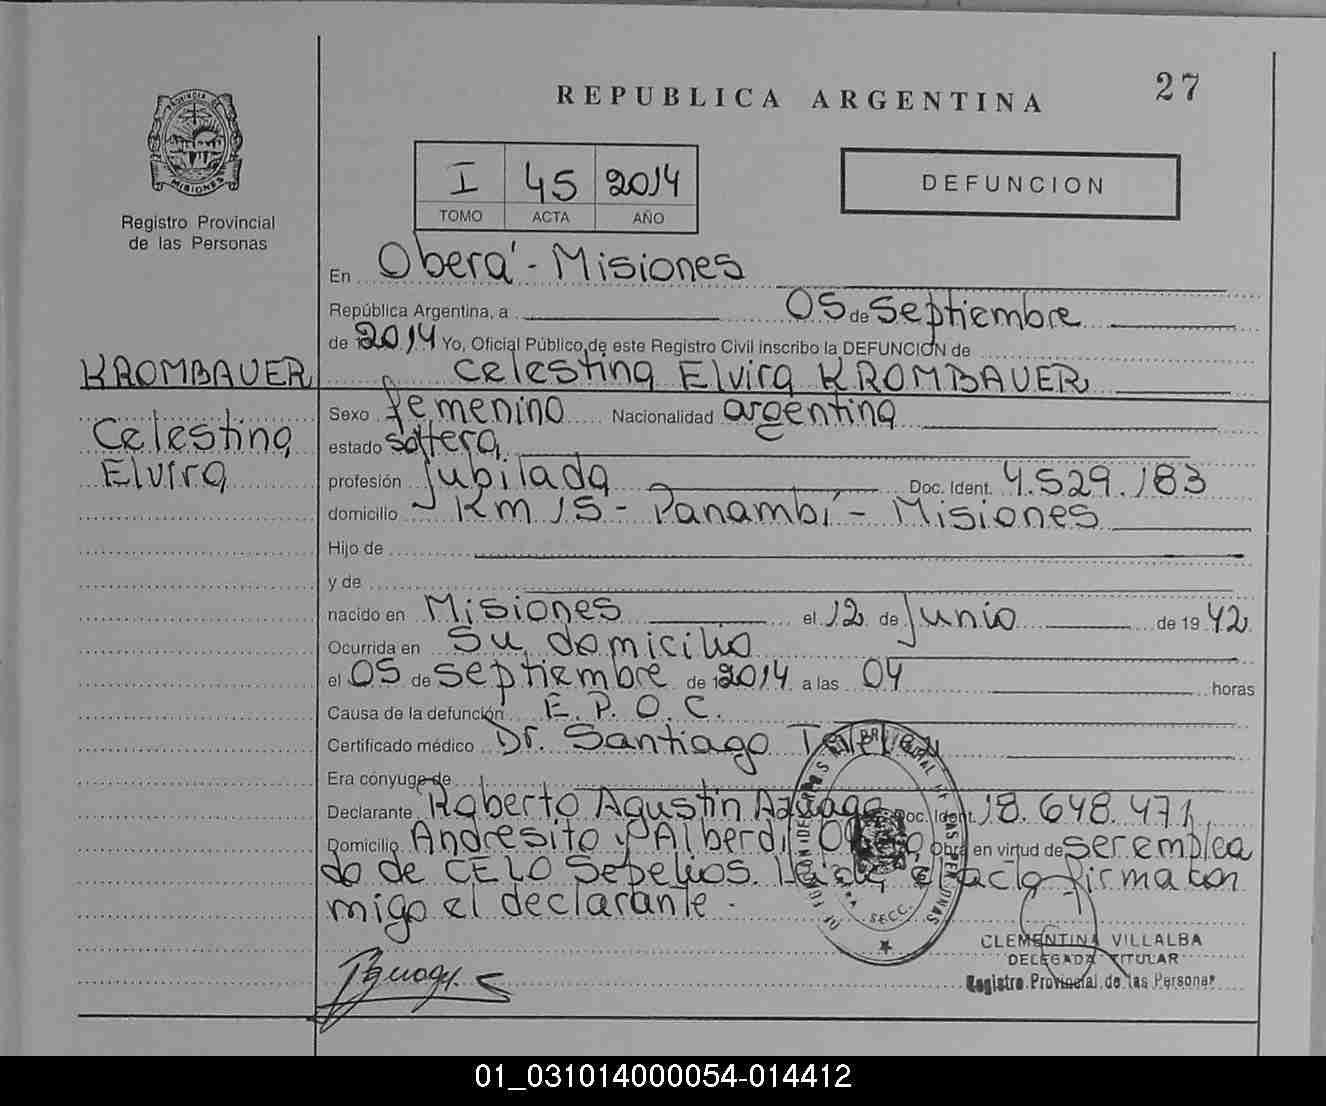 27
REPUBLICA ARGENTINA
PROVINCIA DE
MISIONES
Registro Provincial
de las Personas
I 45 2014
TOMO ACTA AÑO
DEFUNCION
En Oberá - Misiones
República Argentina, a 05 de Septiembre
de 2014 Yo, Oficial Público de este Registro Civil inscribo la DEFUNCION de
KROMBAUER
Celestina Elvira KROMBAUER
Celestina
Elvira
Sexo femenino Nacionalidad argentina
estado soltera
profesión jubilada Doc. Ident. 4.529.183
domicilio Km 15 - Panambí - Misiones
Hijo de
y de
nacido en Misiones el 12 de Junio de 19 42
Ocurrida en Su domicilio
el 05 de septiembre de 2014 a las 04 horas
Causa de la defunción E.P.O.C.
Certificado médico Dr. Santiago
Era cónyuge de
Declarante Roberto Agustin Doc. Ident. 18.648.471
Domicilio Andresito y Alberdi Obra en virtud de ser emplea
do de CELO Sepelios. Leida el acta firma con
migo el declarante.
CLEMENTINA VILLALBA
DELEGADA TITULAR
Registro Provincial de las Personas
01_031014000054-014412